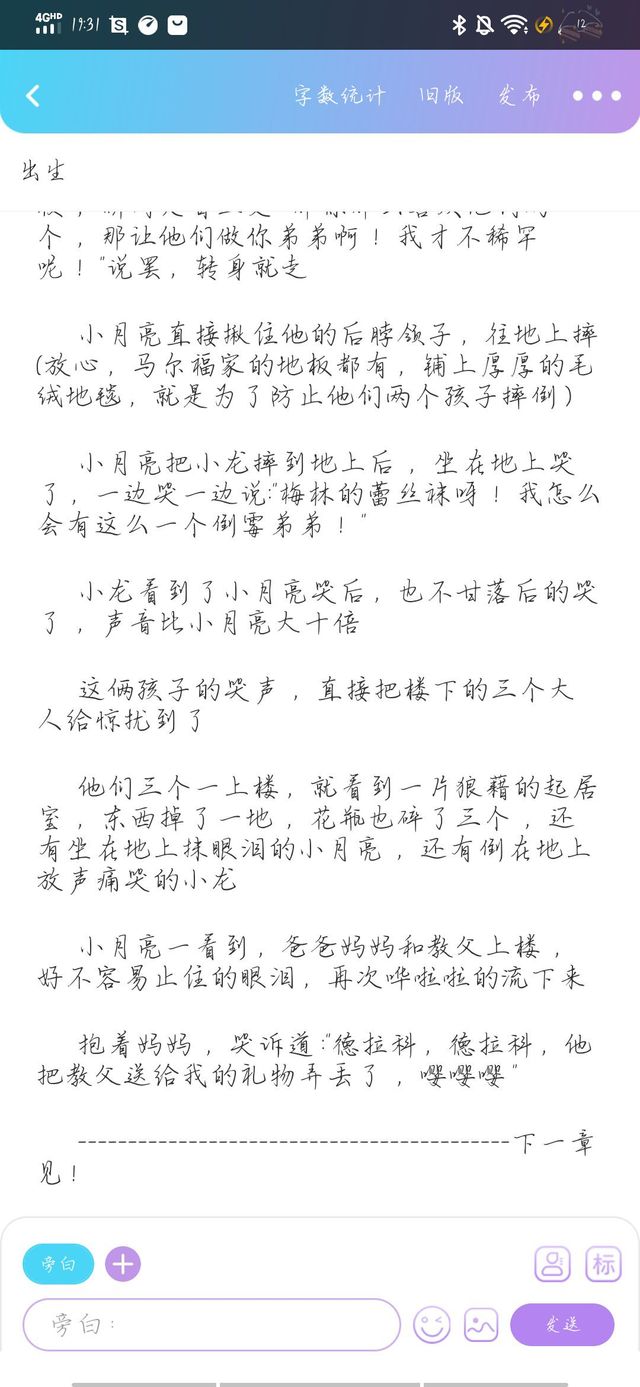 4GHD 19:31 12
字数统计 旧版 发布
出生
个，那让他们做你弟弟啊！我才不稀罕
呢！"说罢，转身就走
小月亮直接揪住他的后脖领子，往地上摔
(放心，马尔福家的地板都有，铺上厚厚的毛
绒地毯，就是为了防止他们两个孩子摔倒）
小月亮把小龙摔到地上后，坐在地上哭
了，一边哭一边说:"梅林的蕾丝袜呀！我怎么
会有这么一个倒霉弟弟！"
小龙看到了小月亮哭后，也不甘落后的哭
了，声音比小月亮大十倍
这俩孩子的哭声，直接把楼下的三个大
人给惊扰到了
他们三个一上楼，就看到一片狼藉的起居
室，东西掉了一地，花瓶也碎了三个，还
有坐在地上抹眼泪的小月亮，还有倒在地上
放声痛哭的小龙
小月亮一看到，爸爸妈妈和教父上楼，
好不容易止住的眼泪，再次哗啦啦的流下来
抱着妈妈，哭诉道:"德拉科，德拉科，他
把教父送给我的礼物弄丢了，嘤嘤嘤"
-------------------------------------------下一章
见！
旁白 标
旁白： 发送